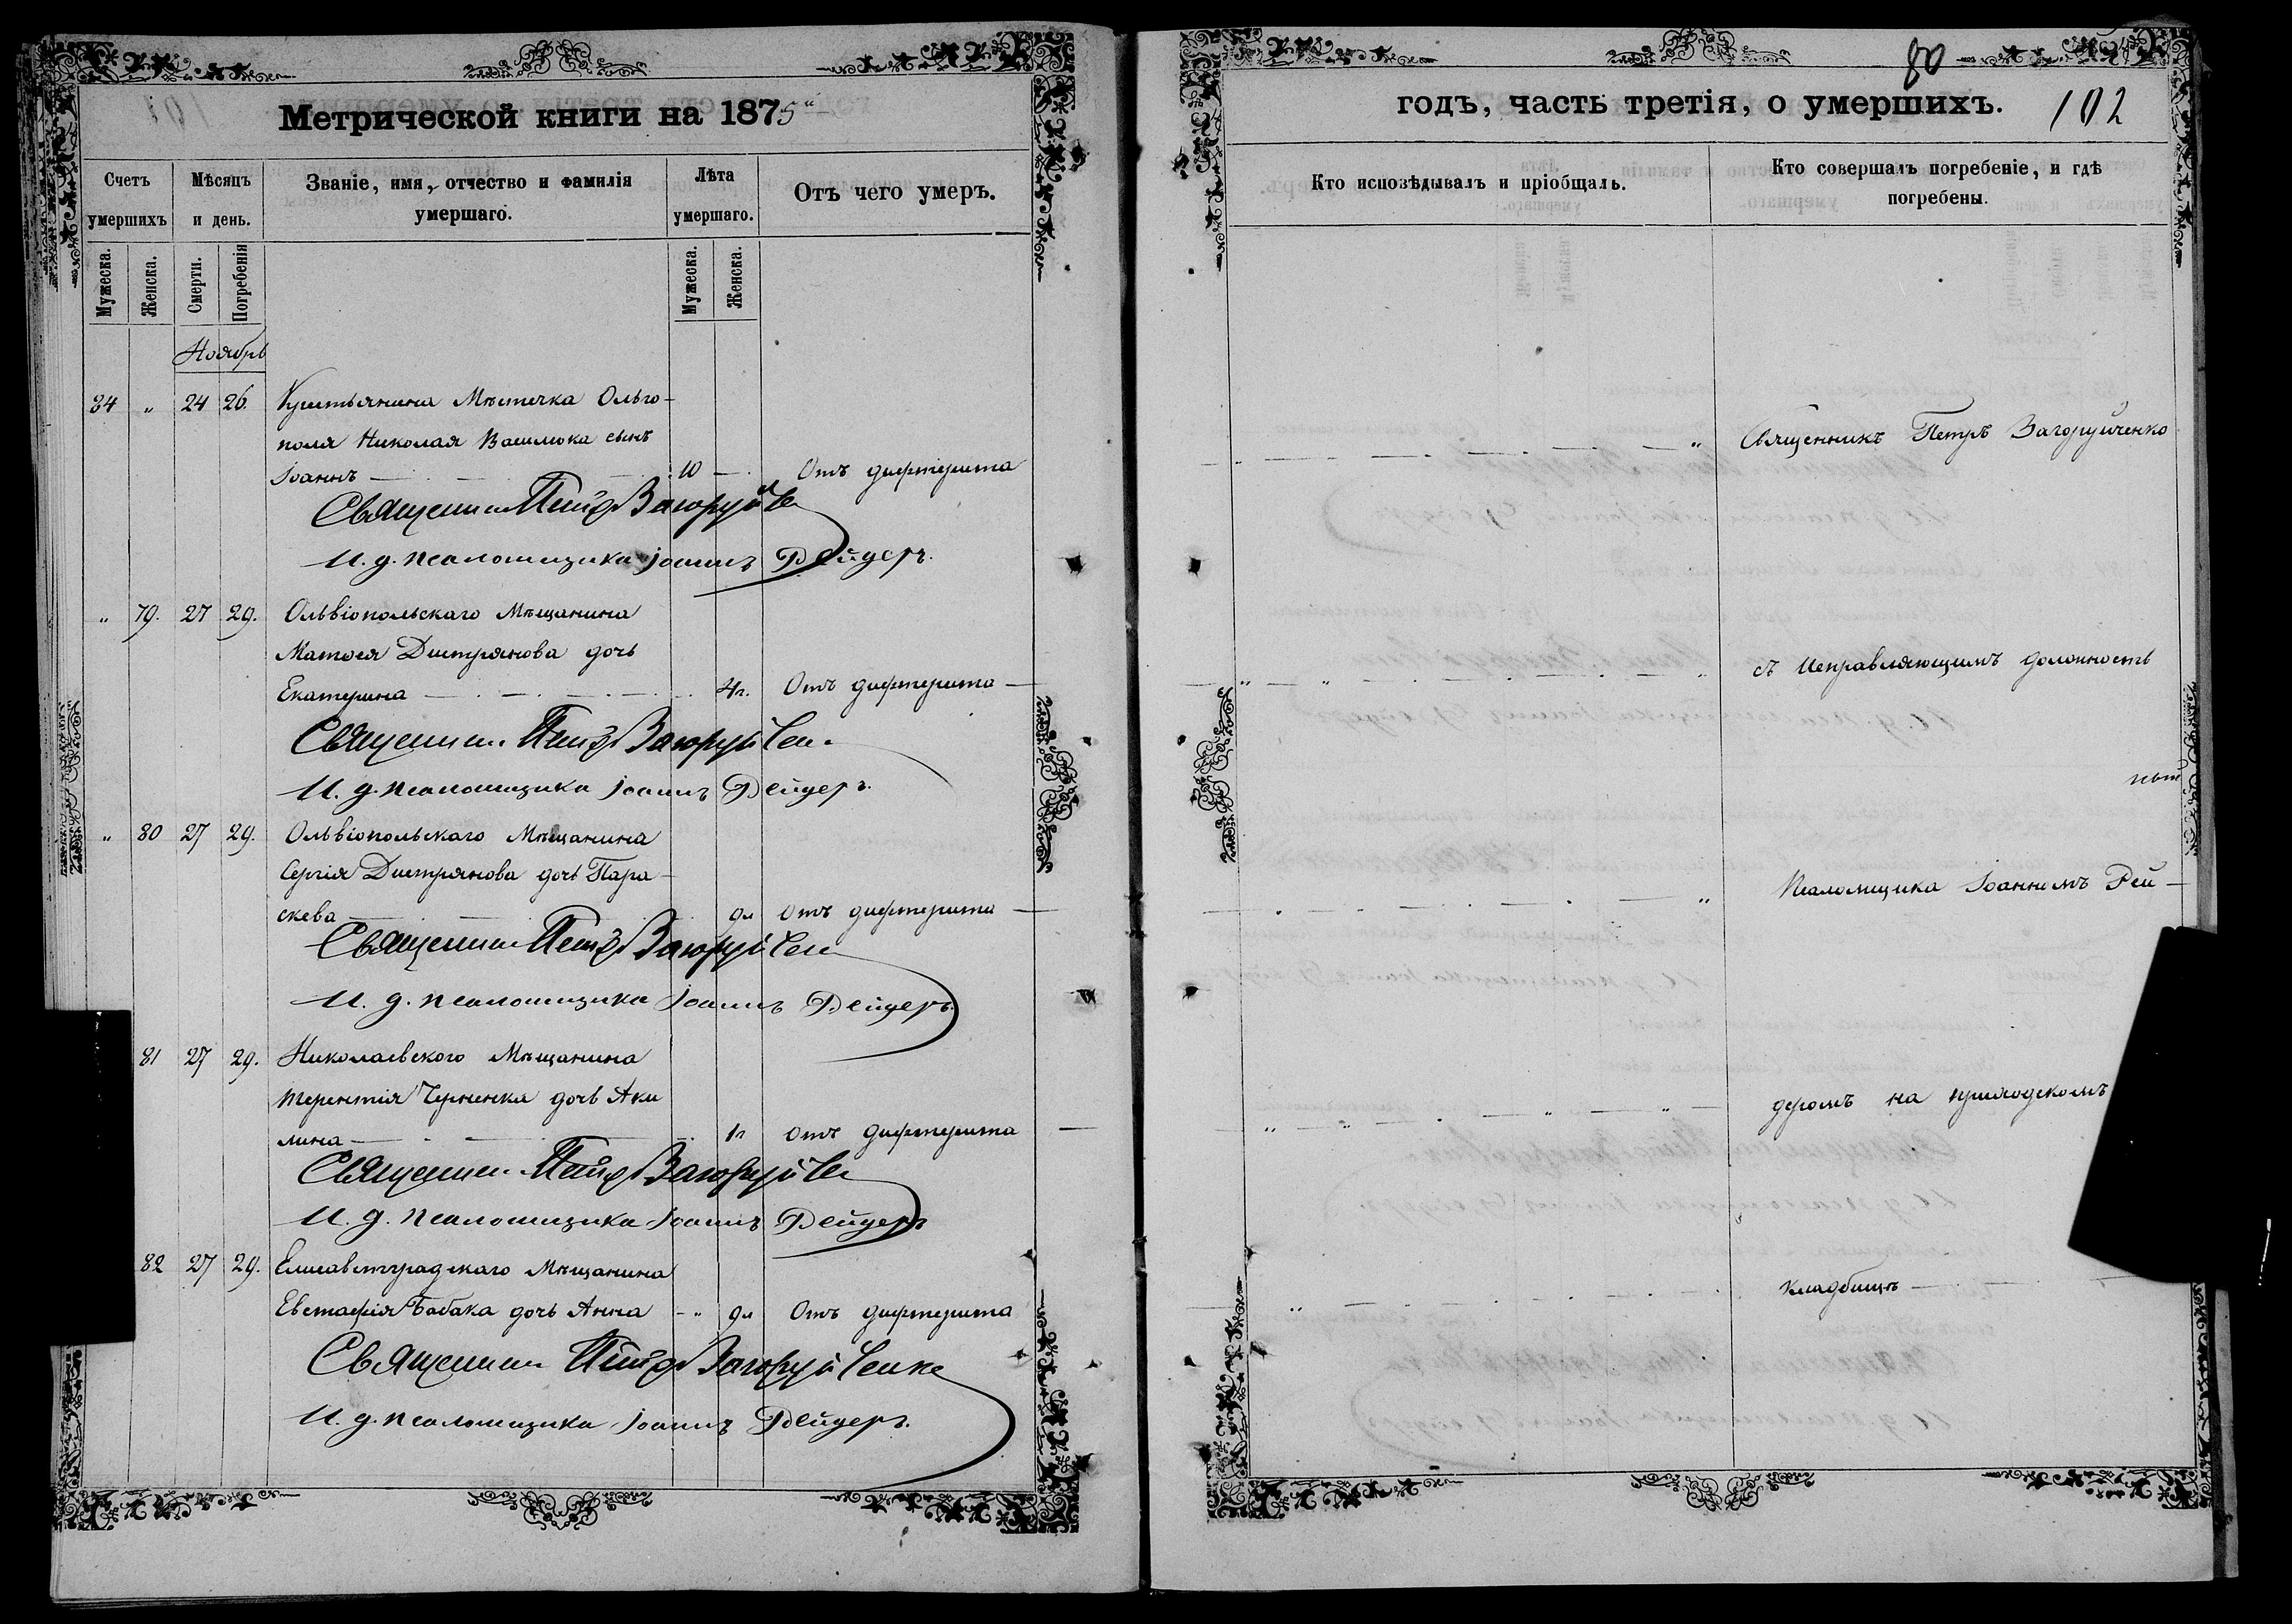 Метрической книги на 1875й
Счетъ умершихъ
Мѣсяцъ и день.
Званіе, имя, отчество и фамилія умершаго.
Лѣта умершаго.
Отъ чего умеръ.
Мужеска.
Женска.
Смерти.
Погребенія
Мужеска.
Женска.
Ноябрь
84 „ 24 26. Крестьянина Мѣстечка Ольго-
поля Николая Василюка сынъ
Іоаннъ — 10 — Отъ дифтерита
Священникъ Петръ Загоруйченко
И. д. псаломщика Іоаннъ Рейдеръ.
„ 79. 27 29. Ольвіопольскаго Мѣщанина
Матѳея Дистрянова дочь
Екатерина — 4л. Отъ дифтерита —
Священникъ Петръ Загоруйченко
И. д. псаломщика Іоаннъ Рейдеръ.
„ 80 27 29. Ольвіопольскаго Мѣщанина
Сергія Дистрянова дочь Пара-
скева — 9л Отъ дифтерита —
Священникъ Петръ Загоруйченко
И. д. псаломщика Іоаннъ Рейдеръ.
81 27 29. Николаевского Мѣщанина
Терентія Черненка дочь Аки
лина — 1л Отъ дифтерита —
Священникъ Петръ Загоруйченко
И. д. псаломщика Іоаннъ Рейдеръ
82 27 29. Елисаветградскаго Мѣщанина
Евстафія Бабака дочь Анна — „ 9л Отъ дифтерита
Священникъ Петръ Загоруйченко
И. д. псаломщика Іоаннъ Рейдеръ.
80
годъ, часть третія, о умершихъ. 102
Кто исповѣдывалъ и пріобщалъ.
Кто совершалъ погребеніе, и гдѣ погребены.
Священникъ Петръ Загоруйченко
съ Исправляющимъ должность
Псаломщика Іоанномъ Рей-
деромъ на приходскомъ
кладбищѣ —